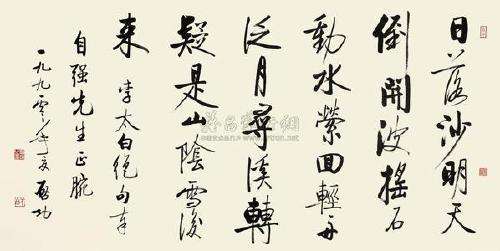 日落沙明天
倒開波搖石
動水縈回輕舟
泛月尋溪轉
疑是山陰雪後
來 李太白絕句奉
自強先生正腕
一九九零年夏 启功